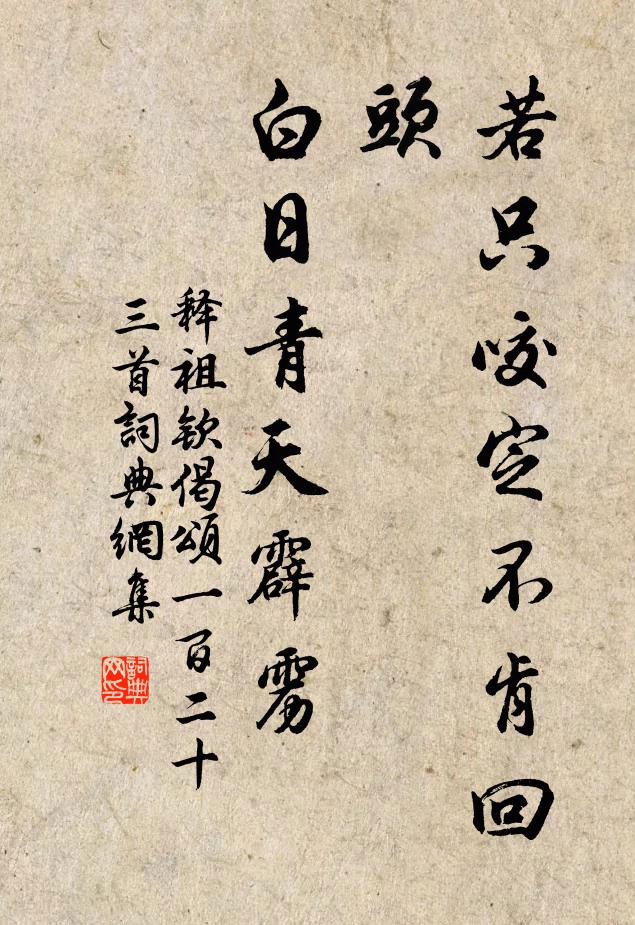 若只咬定不肯回
頭
白日青天霹雳
释祖欽偈頌一百二十
三首詞典網集
詞典
网印